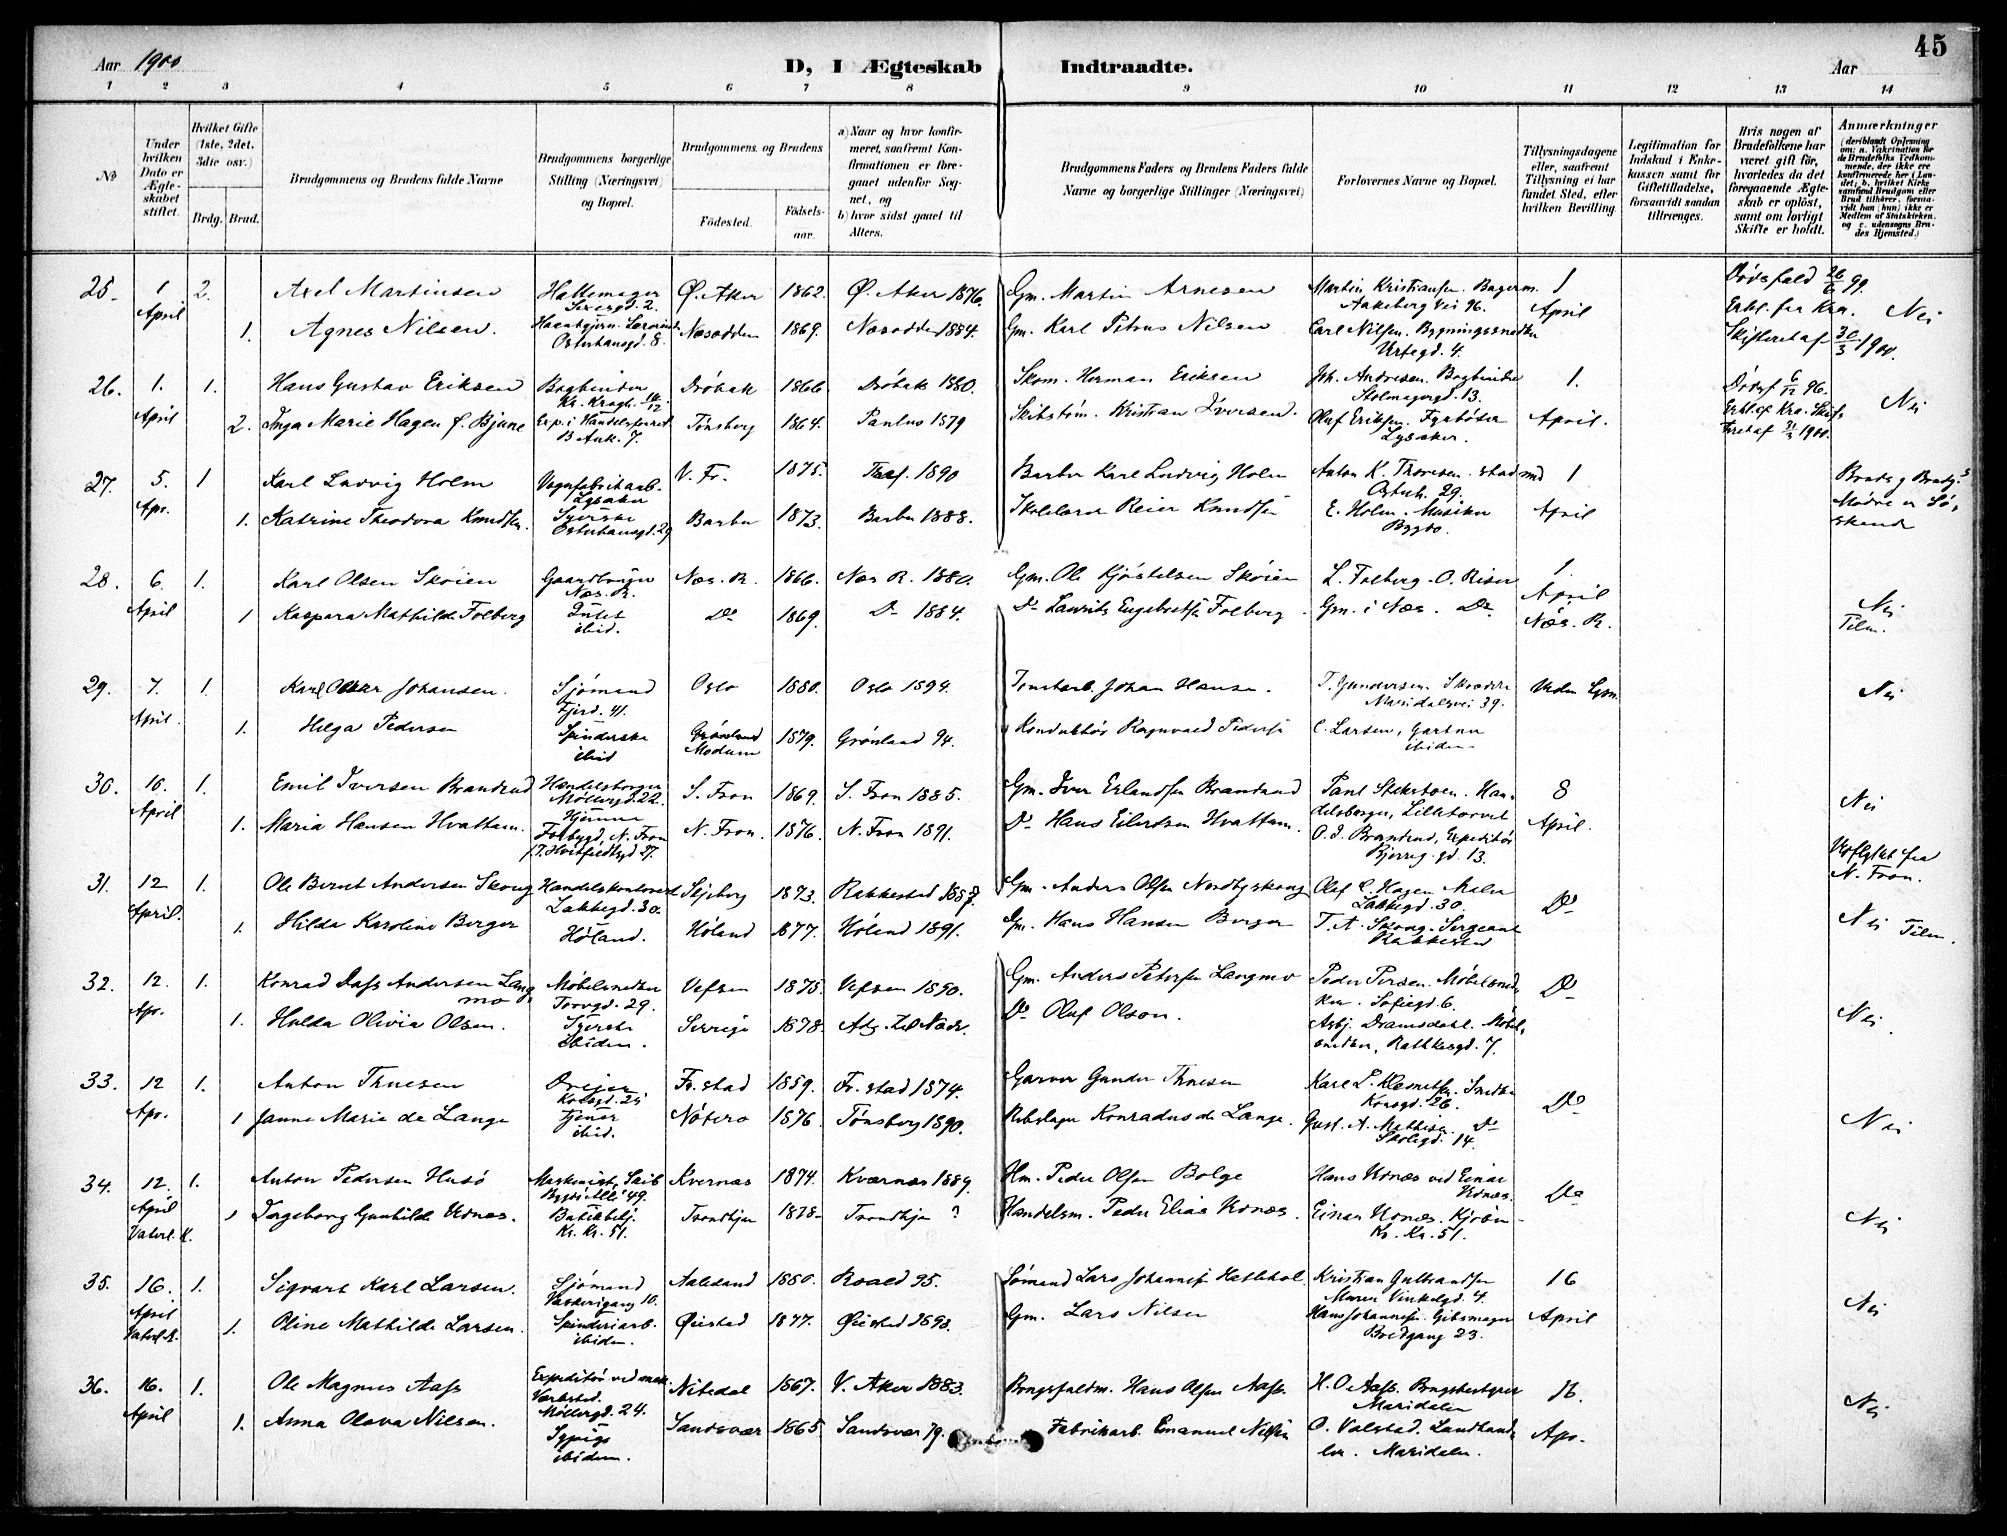 45
Aar 1900
D, I Ægteskab Indtraadte.
Aar
1 2 3 4 5 6 7 8 9 10 11 12 13 14
No
Under hvilken Dato er Ægteskabet stiftet.
Hvilket Gifte (1ste, 2det, 3die osv.)
Brdg. Brud.
Brudgommens og Brudens fulde Navne
Brudgommens borgerlige Stilling (Næringsvei) og Bopæl.
Brudgommens og Brudens
Födested.
Födsels-aar.
a) Naar og hvor konfirmeret, saafremt Konfirmationen er foregaaet udenfor Sognet, og
b) hvor sidst gaaet til Alters.
Brudgommens Faders og Brudens Faders fulde Navne og borgerlige Stillinger (Næringsvei)
Forlovernes Navne og Bopæl.
Tillysningsdagene eller, saafremt Tillysning ei har fundet Sted, efter hvilken Bevilling.
Legitimation for Indskud i Enkekassen samt for Giftetilladelse, forsaavidt saadan tiltrænges.
Hvis nogen af Brudefolkene har været gift för, hvorledes da det foregaaende Ægteskab er oplöst, samt om lovligt Skifte er holdt.
Anmærkninger
(deriblandt Oplysning om: a. Vakcination for de Brudefolks Vedkommende, der ikke ere konfirmerede her i Landet; b. hvilket Kirkesamfund Brudgom eller Brud tilhörer, forsaavidt han (hun) ikke er Medlem af Statskirken, og c. udensogns Brudes Hjemsted.)
25. 1 April 2. Axel Martinsen Ø. Aker 1862. Ø. Aker 1876. Gm. Martin Arnesen Martin Kristiansen. Bagerm. Aakeberg vei 96. 1 April Dødsfald 26/6 99
1. Agnes Nilsen. Osterhausgd. 8. Næsodden 1869. Næsodden 1884. Gm. Karl Petrus Nilsen Carl Nilsen. Bygningssnedker Urtegd. 4. Erkl. fra Kra. Skifteret af 30/3 1900. Nei
26. 1. April 1. Hans Gustav Eriksen Bogbinder Drøbak 1866 Drøbak 1880. Skom. Herman Eriksen Joh. Andresen. Bogbinder Stolmagergd. 13. 1. April. Dødsf 6/12 96.
2. Inga Marie Hagen f. Bjune B Ank. 7. Tønsberg 1864. Paulus 1879 Kristian Iversen. Olaf Eriksen. Fyrbøder Lysaker. Erkl. af Kra. Skifteret af 31/3 1900. Nei
27. 5. Apr. 1 Karl Ludvig Holm Vognfabrikarb. Lysaker V. Fr. 1875. 1890 Barber Karl Ludvig Holm Anton K. Thoresen. Osterh. 29. 1 April
1. Katrine Theodora Knudsen. Syerske Osterhausgd. 29 Barbu 1873. Barbu 1888. Skolelærer Reier Knudsen E. Holm. Musiker Bygdø. Bruds g Brudg.s Mødre er Søskende
28. 6. April 1. Karl Olsen Skøien Gaardbruger Næs. R. Næs. R. 1866. Næs R. 1880. Gm. Ole Kjøstelsen Skøien L. Folberg - O. Riser 1. April
1 Kaspara Mathilde Folberg Intet ibid. Do 1869. Do 1884. Do Laurits Engebretsen Folberg. Gm. i Næs. Do Næs. R. Nei Tilm.
29. 7. April. 1. Karl Oskar Johansen. Sjømand Fjerd. 41. Oslo 1880. Oslo 1894. Johan Hansen. T. Gundersen. Skrædder Maridalsvei 39. Uden Lysn. Nei
1. Helga Pedersen Spinderske ibid Grønland Modum 1879. Grønland 94. Konduktør Ragnvald Pedersen C. Larsen, Gartner ibidem
30. 10. April 1. Emil Iversen Brandrud Handelsborger Møllergd. 22. S. Fron 1869. S. Fron 1885. Gm. Iver Erlandsen Brandrud Handelsborger, Lilletorvet 8 April. Nei
1. Maria Hansen Hvattum. Hjemme N. Fron N. Fron. 1876. N. Fron 1891. Do Hans Eilertsen Hvattum. O. I. Brandrud, Expeditør 13. N. Fron.
31. 12 April. 1. Ole Bernt Andersen Skoug Lakkegd. 30. 1873. Rakkestad 1887. Gm. Anders Olsen Nordbyskoug Olaf C. Hagen Maler Lakkegd. 30. Do
1. Hilda Karoline Berger Høland. Høland 1877. Høland 1891. Gm. Hans Hansen Berger T. A. Skoug. Sergeant Rakkestad Nei Tilm.
32. 12. Apr. 1. Konrad Dass Andersen Langmo Møbelsnedker Torvgd. 29. Vefsen 1875. Vefsen 1890. Gm. Anders Petersen Langmo Peder Persen. Møbelsnedker. Sofiegd. 6. Do
1. Hulda Olivia Olsen. Syerske ibidem. Sverige 1878. Do Olaf Olson. Asbj. Dramsdahl. Møbelsnedker, Rathkesgd. 7. Nei.
33. 12 Apr. 1. Anton Thuesen Dreier Korsgd. Fr. stad 1859. Fr. stad 1874. Garver Gunder Thuesen Karl L. Klemetsen. Smed Korsgd. 26. Do
1 Janne Marie de Lange Tjener ibid. Nøterø 1876. Tønsberg 1890. Rebslager Konradus de Lange. Gust. A. Do Skolegd. 14. Nei
34. 12. April Vaterl. K. 1. Anton Pedersen Husø Maskinist, Bygdø Allé 49. Kvernæs 1874. Kværnæs 1889. Hm. Peder Olsen Bolge Hans Udnæs ved Einar Udnæs. Do
1 Ingeborg Gunhilde Udnæs. Kr. Kr. 51. Trondhjem 1878. Trondhjem ? Handelsm. Peder Elias Udnæs. Einar Udnæs. Kr. Kr. 51. Nei
35. 16. April Vaterl. K. 1. Sigvart Karl Larsen. Sjømand Vaskerigang 10. Aalesund 1880. Roald 95. Sømand Lars Johannesen Kristian Gulbrandsen Murer Vinkelgd. 4. 16 April
1. Oline Mathilde Larsen. Spinderiarb. ibidem. Øiestad 1877. Øiestad 1893. Gm. Lars Nilsen Hans Johannesen. Gibsmager Bredgang 23. Nei
36. 16. April 1. Ole Magnus Aass Expeditør ved mek. Værksted. Møllergd. 24. Nitedal 1867. V. Aker 1883. Brugsfuldm. Hans Olsen Aass H. O Aass. Brugsbestyrer Maridalen 16.
1. Anna Olava Nilsen. Sypige ibidem. Sandsvær 1865. Sandsvær 79. Fabrikarb. Emanuel Nilsen O. Valstad. Landhandler. Maridalen. Apr. Nei